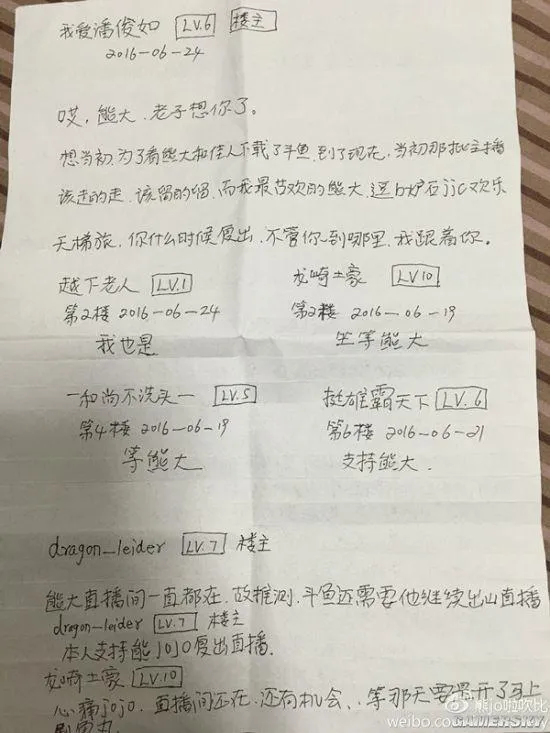 我爱潘俊如 LV.6 楼主
2016-06-24
哎,熊大,老子想你了。
想当初,为了看熊大和佳人下载了斗鱼,到了现在,当初那批主播
该走的走,该留的留,而我最喜欢的熊大,逗b炉石jjc欢乐
天梯旅,你什么时候复出,不管你到哪里,我跟着你。
越下老人 LV.1
第2楼 2016-06-24
我也是
龙崎土豪 LV10
第2楼 2016-06-19
坐等熊大
一和尚不洗头一 LV.5
第4楼 2016-06-19
等熊大
挺雄霸天下 LV.6
第6楼 2016-06-21
支持熊大.
dragon_leider LV.7 楼主
熊大直播间一直都在,故推测,斗鱼还需要他继续出山直播
dragon_leider LV.7 楼主
本人支持熊JOJO复出直播.
龙崎土豪 LV.10
心痛jojo.直播间还在,还有机会、等那天要是开了马上
熊jo啦吹比
weibo.com
GAMERSKY